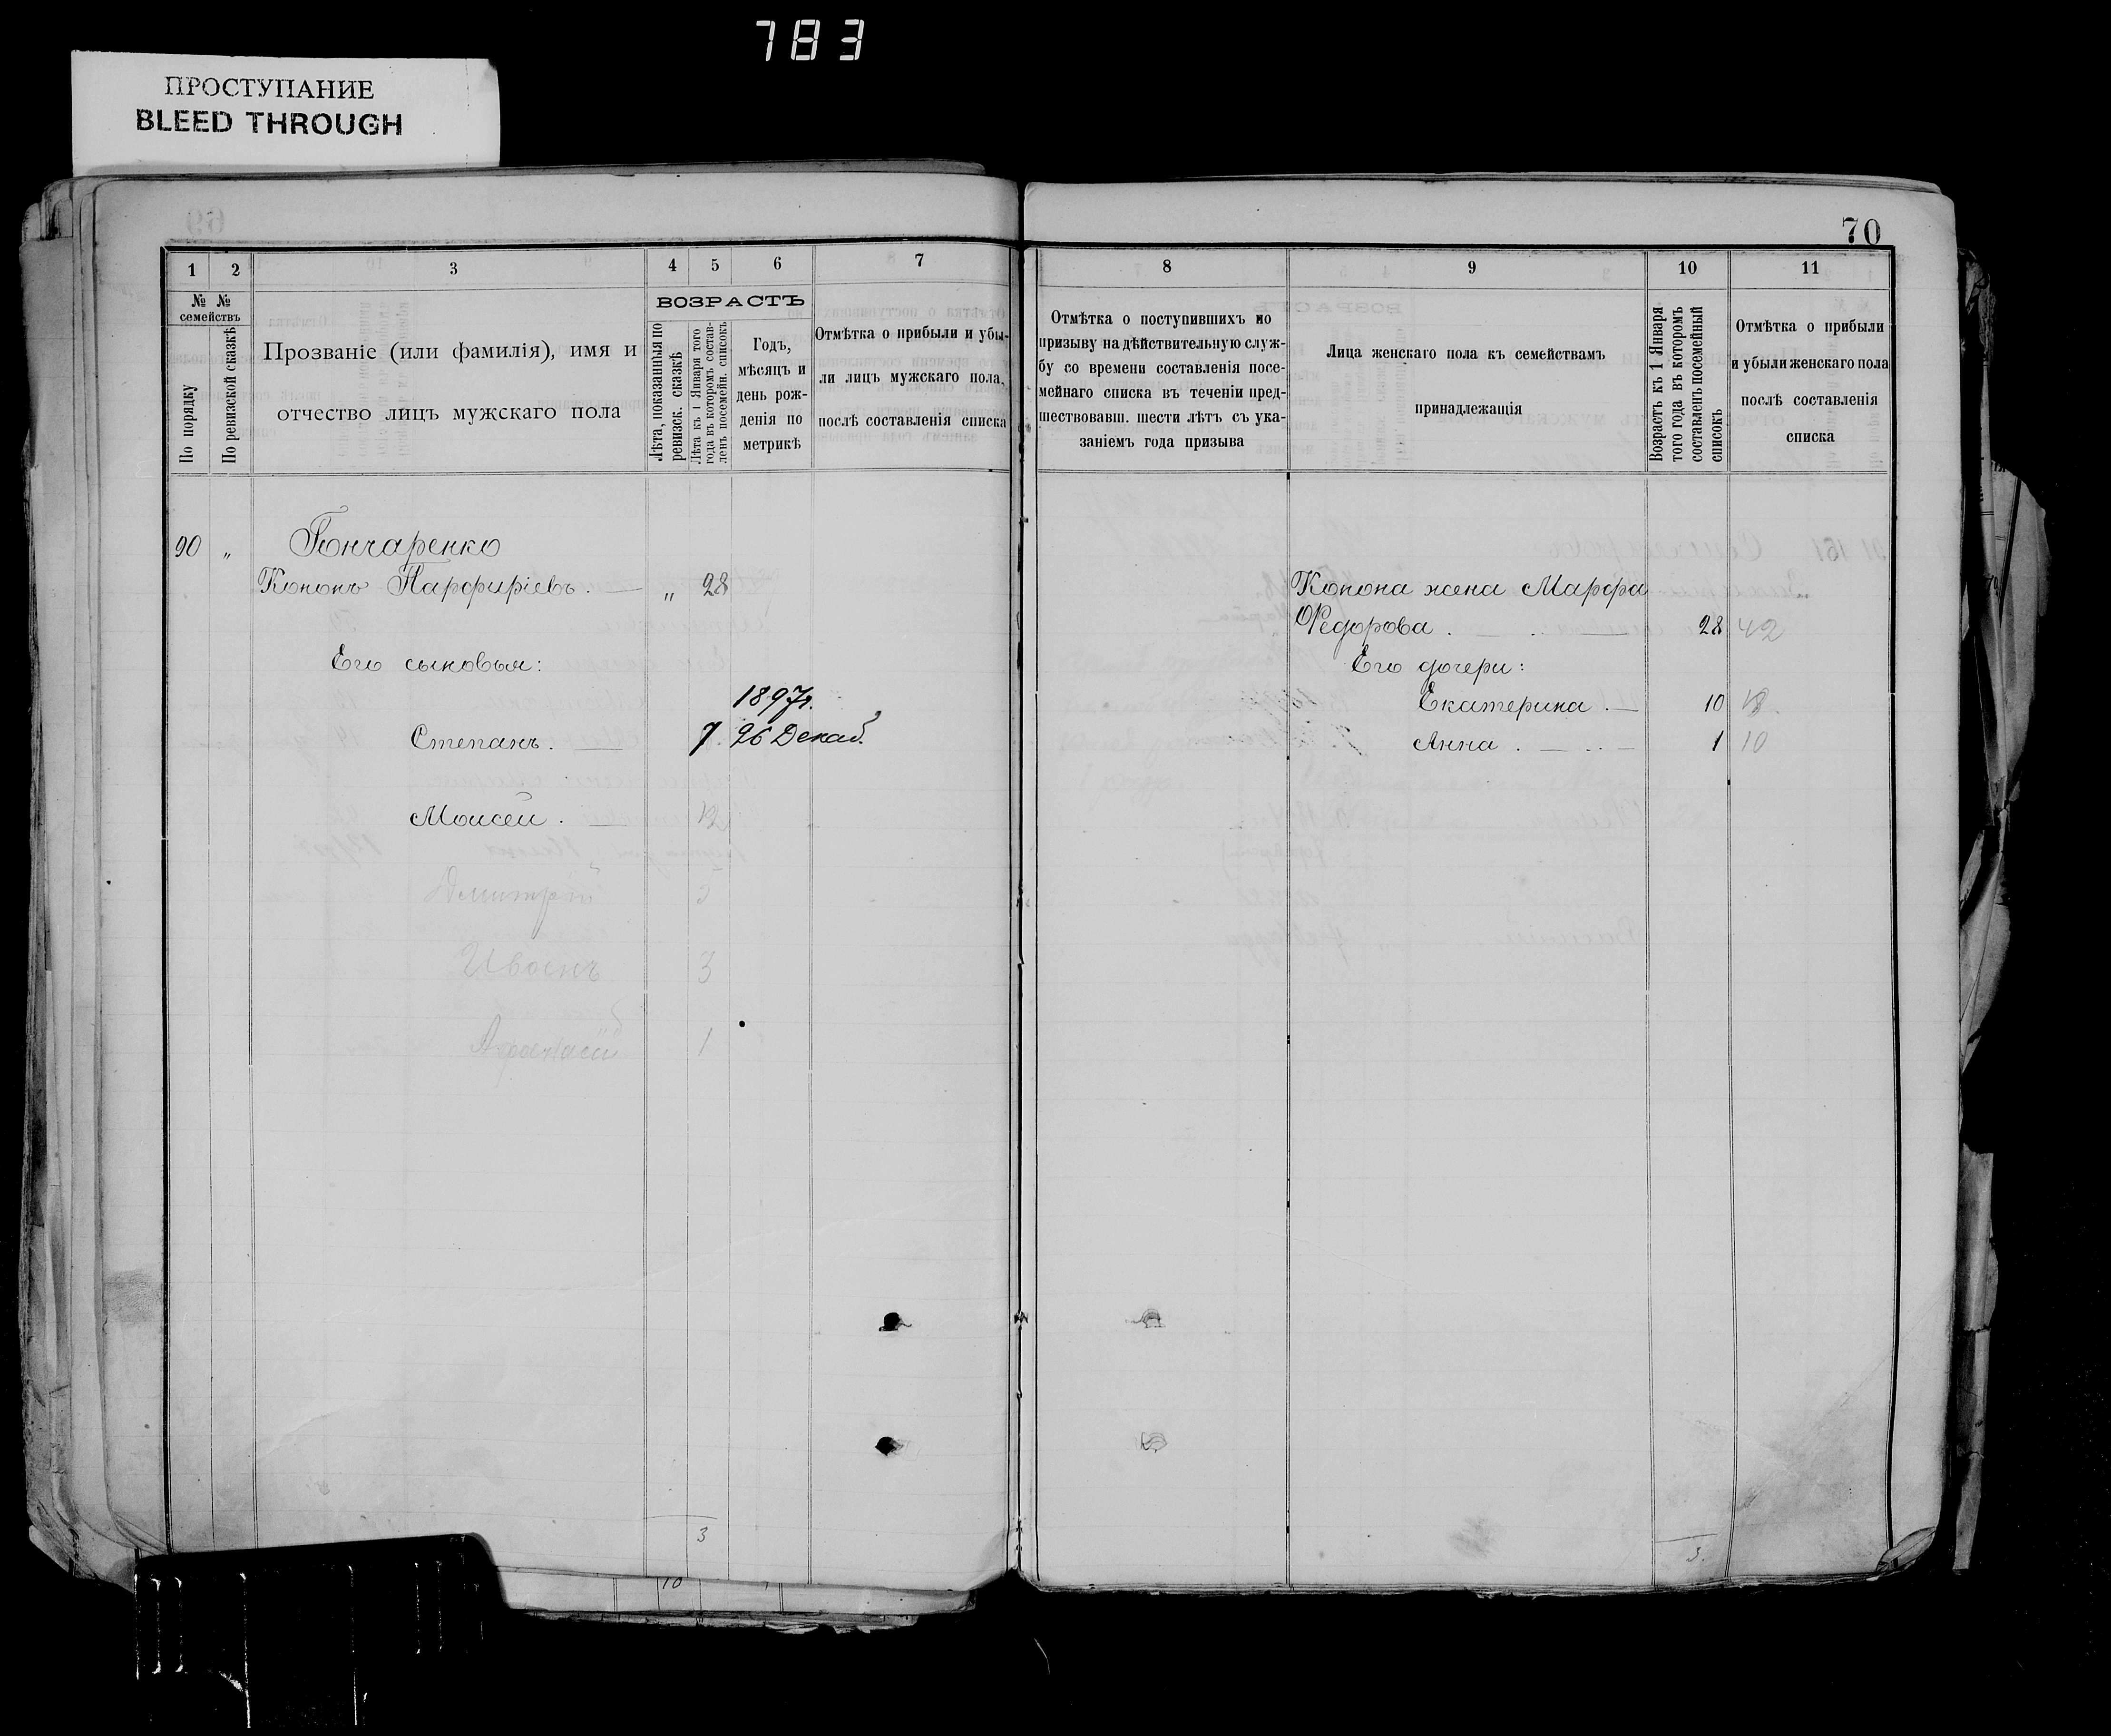 783
ПРОСТУПАНИЕ
BLEED THROUGH
70
1 2 3 4 5 6 7
№ № семействъ
По порядку
По ревизской сказкѣ
Прозваніе (или фамилія), имя и
отчество лицъ мужскаго пола
ВОЗРАСТЪ
Лѣта, показанныя по
ревизск. сказкѣ
Лѣта къ 1 Января того
года въ которомъ состав-
ленъ посемейн. списокъ
Годъ,
мѣсяцъ и
день рож-
денія по
метрикѣ
Отмѣтка о прибыли и убы-
ли лицъ мужскаго пола,
послѣ составленія списка
90 „ Гончаренко
Кононъ Парфиріевъ. — „ 28
Его сыновья:
1897г.
Степанъ. — 7 26 Декаб.
Моисей. —
Дмитрій 5
Иванъ 3
Афанасій 1
3
10
8 9 10 11
Отмѣтка о поступившихъ по
призыву на дѣйствительную служ-
бу со времени составленія посе-
мейнаго списка въ теченіи пред-
шествовавш. шести лѣтъ съ ука-
заніемъ года призыва
Лица женскаго пола къ семействамъ
принадлежащія
Возрастъ къ 1 Января
того года въ которомъ
составленъ посемейный
списокъ
Отмѣтка о прибыли
и убыли женскаго пола
послѣ составленія
списка
Конона жена Марфа
Федорова. — .. — 28 42
Его дочери:
Екатерина. — 10 18.
Анна. — .. — 1 10
3.